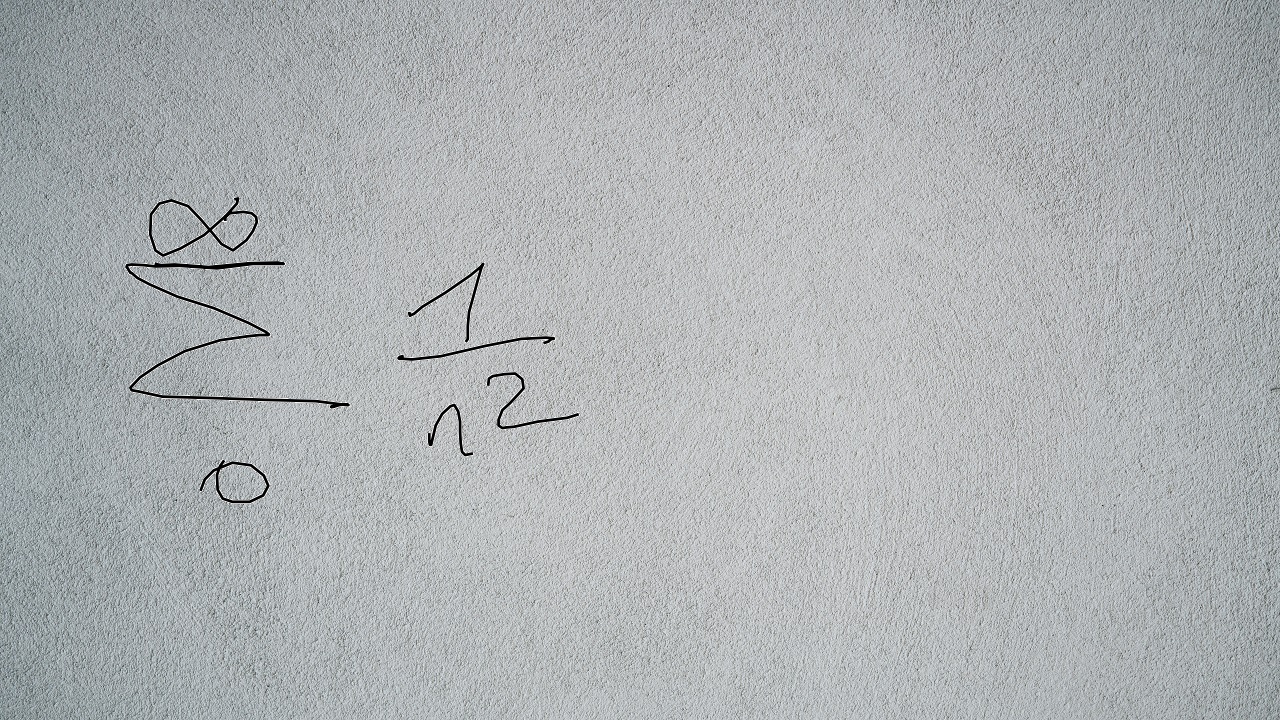 ∑_{0}^{∞} 1/n²